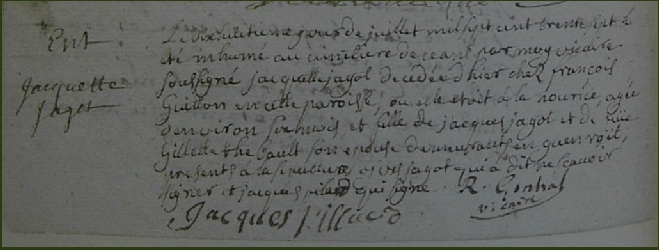 Ent
Jacquette
Jagot
Le dixhuitieme jour de juillet mil sept cent trente sept a
été inhumé au cimitiere de ceans par moy vicaire
soussigné jacquette jagot decedée d'hier chez francois
Guitton en cette paroisse, ou elle etoit a la nourice, agée
d'environ mois, et fille de jacques jagot et de
Gillette thebault son epouse demeurants en
presents a la sepulture yves jagot qui a dit ne scavoir
signer et jacques pilard qui signe. R.
vicaire
Jacques Pillard